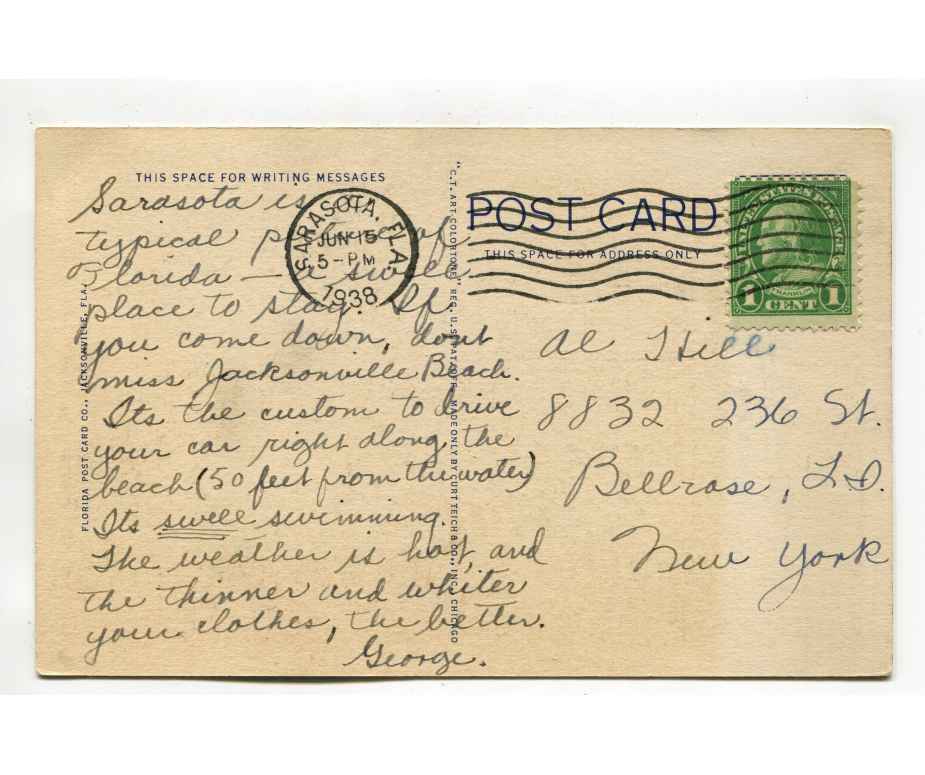 THIS SPACE FOR WRITING MESSAGES
Sarasota is
typical place of
Florida – a swell
place to stay. If
you come down, dont
miss Jacksonville Beach.
Its the custom to drive
your car right along the
beach (50 feet from the water)
Its swell swimming.
The weather is hot, and
the thinner and whiter
your clothes, the better.
George.
SARASOTA, FLA.
JUN 15
5-PM
1938
FLORIDA POST CARD CO., JACKSONVILLE, FLA.
"C.T. ART COLORTONE" REG. U.S. PAT. OFF. MADE ONLY BY CURT TEICH & CO., INC., CHICAGO
POST CARD
THIS SPACE FOR ADDRESS ONLY
UNITED STATES POSTAGE
FRANKLIN
1 CENT 1
Al Hill
8832 236 St.
Bellrose, L.I.
New York